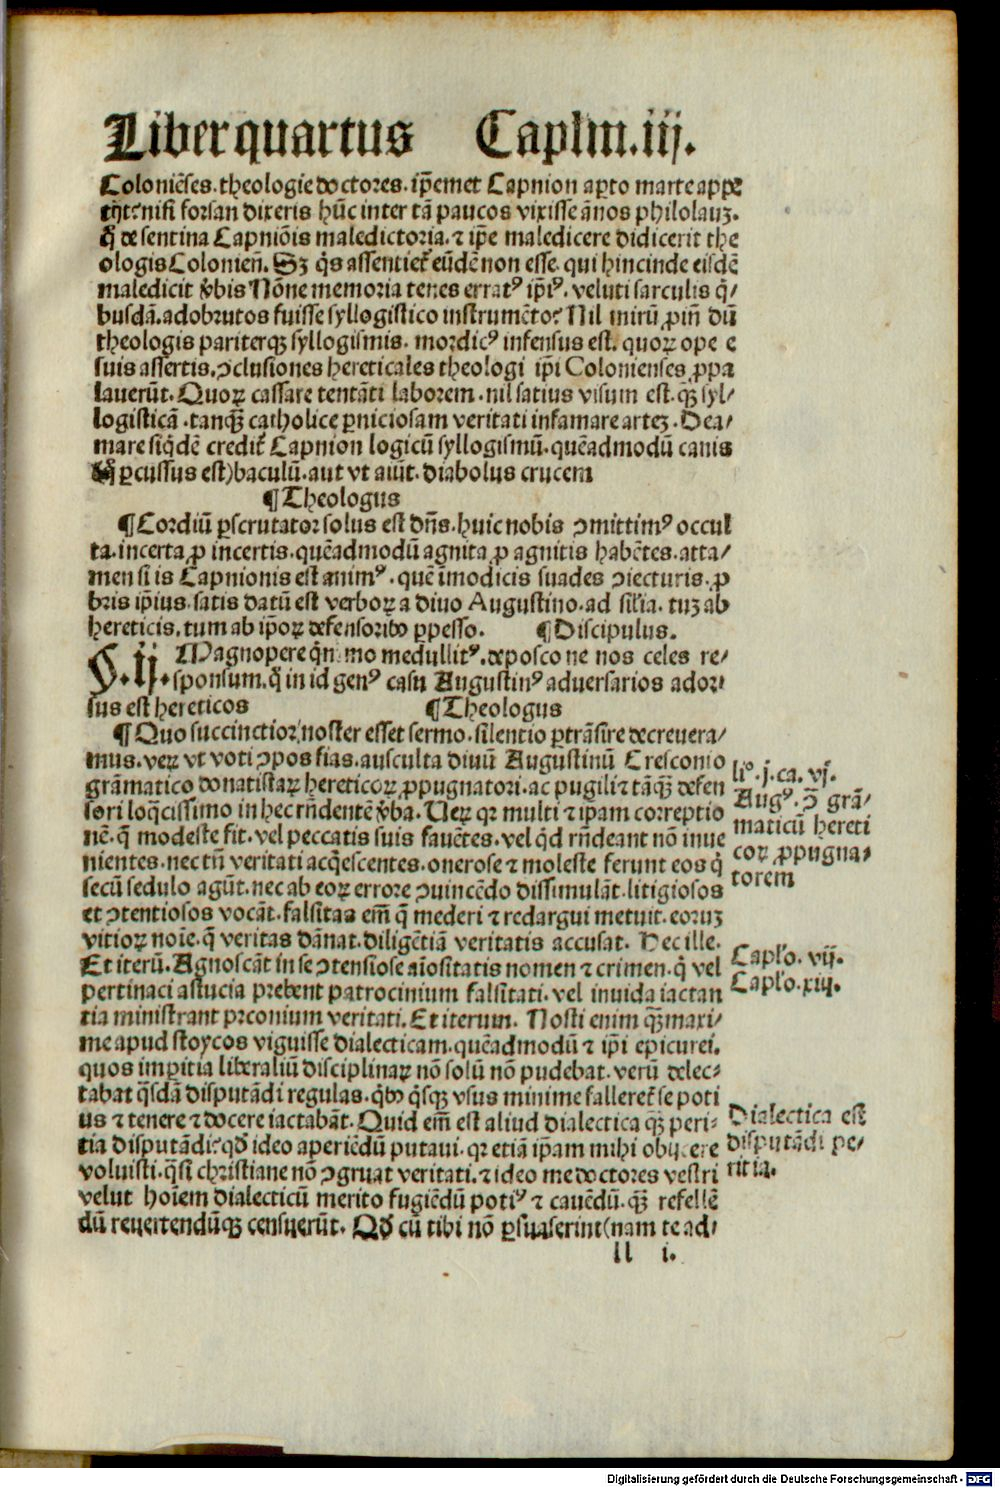 Liber quartus Caplm.iij.
Coloniẽses.theologie doctores.ip̃emet Capnion aꝑto marte appe
tijt:nisi forsan dixeris hũc inter tã paucos vixisse ãnos philolauꝫ.
ꝙ de sentina Capniõis maledictoria.⁊ ip̃e maledicere didicerit the
ologis Colonieñ. Sꝫ q̃s assentiet̃ eũdẽ non esse. qui hincinde eisdẽ
maledicit ṽbis Nõne memoria tenes erratꝰ ip̃iꝰ. veluti sarculis q̃⸗
busdã.adobrutos fuisse syllogistico instrumẽto? Nil mirũ, ꝓin̄ dũ
theologis pariterqꝫ syllogismis. mordicꝰ infensus est. quoꝝ ope e
suis assertis.ↄclusiones hereticales theologi ip̃i Colonienses ꝓpa
lauerũt. Quoꝝ cassare tentãti laborem.nil satius visum est.qꝫ̃ syl⸗
logisticã.tanqꝫ̃ catholice ꝑniciosam veritati infamare artẽ.Dea⸗
mare siq̃dẽ credit̃ Capnion logicũ syllogismũ.quẽadmodũ canis
ꝑcussus est)baculũ.aut vt aiũt.diabolus crucem
¶Theologus
¶Cordiũ ꝑscrutator solus est dñs.huic nobis ↄmittimꝰ occul
ta.incerta ꝓ incertis.quẽadmodũ agnita ꝓ agnitis habẽtes.atta⸗
men si is Capnionis est animꝰ.quẽ ĩmodicis suades ↄiecturis.ꝓ
bris ip̃ius.satis datũ est verboꝝ a diuo Augustino.ad sil̃ia.tuꝫ ab
hereticis.tum ab ip̃oꝝ defensoribꝰ ꝑpesso. ¶Discipulus.
§.ij. Magnopere q̃nĩmo medullitꝰ.deposco ne nos celes re⸗
sponsum.q̃ in id genꝰ casu Augustinꝰ aduersarios ador⸗
sus est hereticos ¶Theologus
¶Quo succinctior noster esset sermo.silentio ꝑtrãsire decreuera⸗
mus.veꝝ vt voti ↄpos fias.ausculta diuũ Augustinũ Cresconio
grãmatico donatistaꝝ hereticoꝝ ꝓpugnatori.ac pugili:tãqꝫ̃ defen
sori loq̃cissimo in hec rñdentẽ ṽba. Veꝝ qꝛ multi ⁊ ipam correptio
nẽ.q̃ modeste fit.vel peccatis suis fauẽtes.vel q̃d rñdeant nõ inue
nientes.nec tñ veritati acq̃escentes.onerose ⁊ moleste ferunt eos q̃
secũ sedulo agũt.nec ab eoꝝ errore ↄuincẽdo dissimulãt.litigiosos
et ↄtentiosos vocãt.falsitas em̃ q̃ mederi ⁊ redargui metuit.eoruꝫ
vitioꝝ noĩe.q̃ veritas dãnat.diligẽtiã veritatis accusat. Hec ille.
Et iterũ.Agnoscãt in se ↄtensiose aĩositatis nomen ⁊ crimen.q̃ vel
pertinaci astucia prebent patrocinium falsitati.vel inuida iactan
tia ministrant preconium veritati.Et iterum. Nosti enim qꝫ̃ maxi⸗
me apud stoycos viguisse dialecticam.quẽadmodũ ⁊ ip̃i epicurei.
quos impitia liberaliũ disciplinaꝝ nõ solũ nõ pudebat.verũ delec⸗
tabat q̃sdã disputãdi regulas.q̃bꝰ q̃sqꝫ vsus minime falleret̃ se poti
us ⁊ tenere ⁊ docere iactabãt.Quid em̃ est aliud dialectica qꝫ̃ peri⸗
tia disputãdi?qd̃ ideo aperiẽdũ putaui.qꝛ etiã ip̃am mihi obijcere
voluisti.q̃si christiane nõ ↄgruat veritati.⁊ ideo me doctores vestri
velut hoĩem dialecticũ merito fugiẽdũ potiꝰ ⁊ cauẽdũ.qꝫ̃ refellẽ
dũ reuertendũqꝫ censuerũt. Qd̃ cũ tibi nõ ꝑsuaserint(nam te ad⸗
ll i.
li°.j.ca.vj.
Augꝰ.ↄ̃ grã⸗
maticũ hereti
coꝝ ꝓpugna⸗
torem
Caplo.vij.
Caplo.xiij.
Dialectica est
disputãdi pe⸗
ritia.
Digitalisierung gefördert durch die Deutsche Forschungsgemeinschaft - DFG